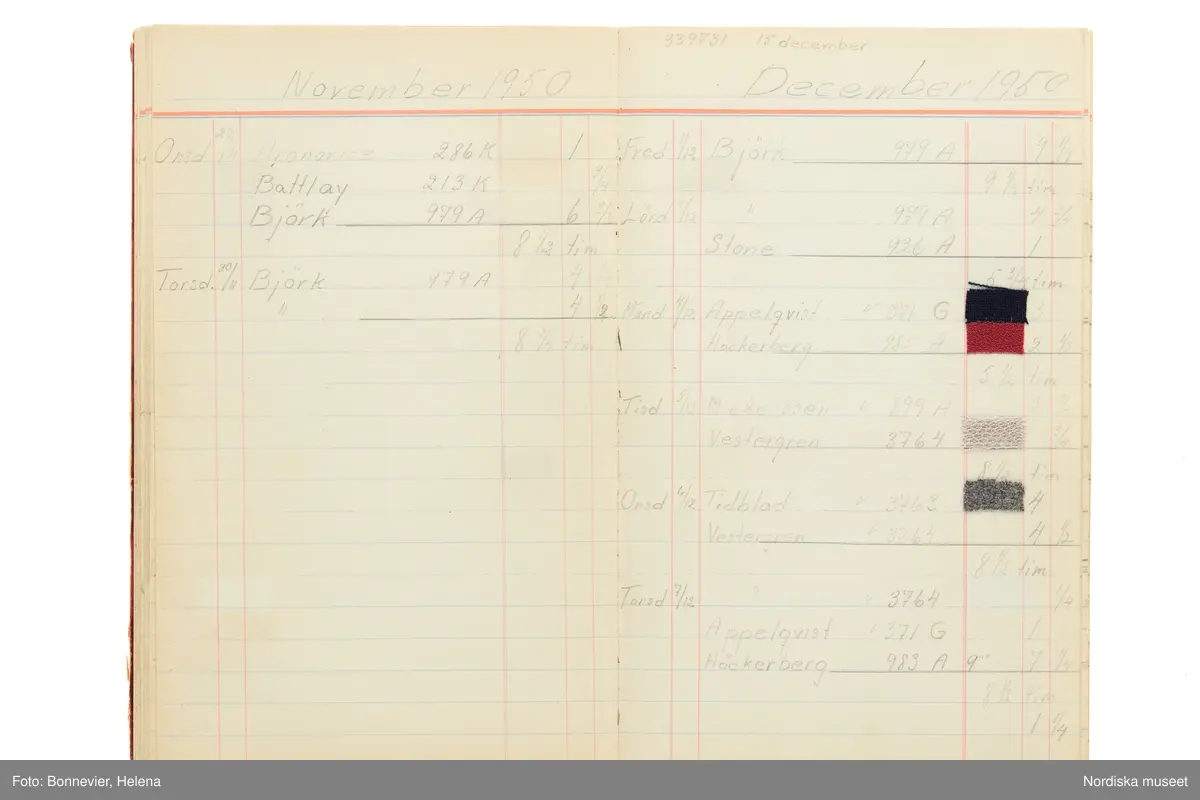 339731 15 december
November 1950
Onsd 286 K 1
Battlay 213 K 3/4
Björk 979 A 6
8 1/2 tim
Torsd. 30/11 Björk 979 A 4
" 4 1/2
8 1/2 tim
December 1950
Fred 1/12 Björk 979 A 9
9 1/2 tim
Lörd 2/12 " 979 A 4
Stone 926 A 1
5 3/4 tim
Månd 4/12 Appelqvist G 3
Höckerberg A 2
5 1/2 tim
Tisd 5/12 899 A
Vestergren 3764
8 1/2 tim
Onsd 6/12 Tidblad 3763 4
Vestergren 3764 4 1/2
8 1/2 tim
Torsd 7/12 " 3764 1/4
Appelqvist 371 G 1
Höckerberg 983 A 9" 7
8 1/2 tim
1 1/4
Foto: Bonnevier, Helena
Nordiska museet